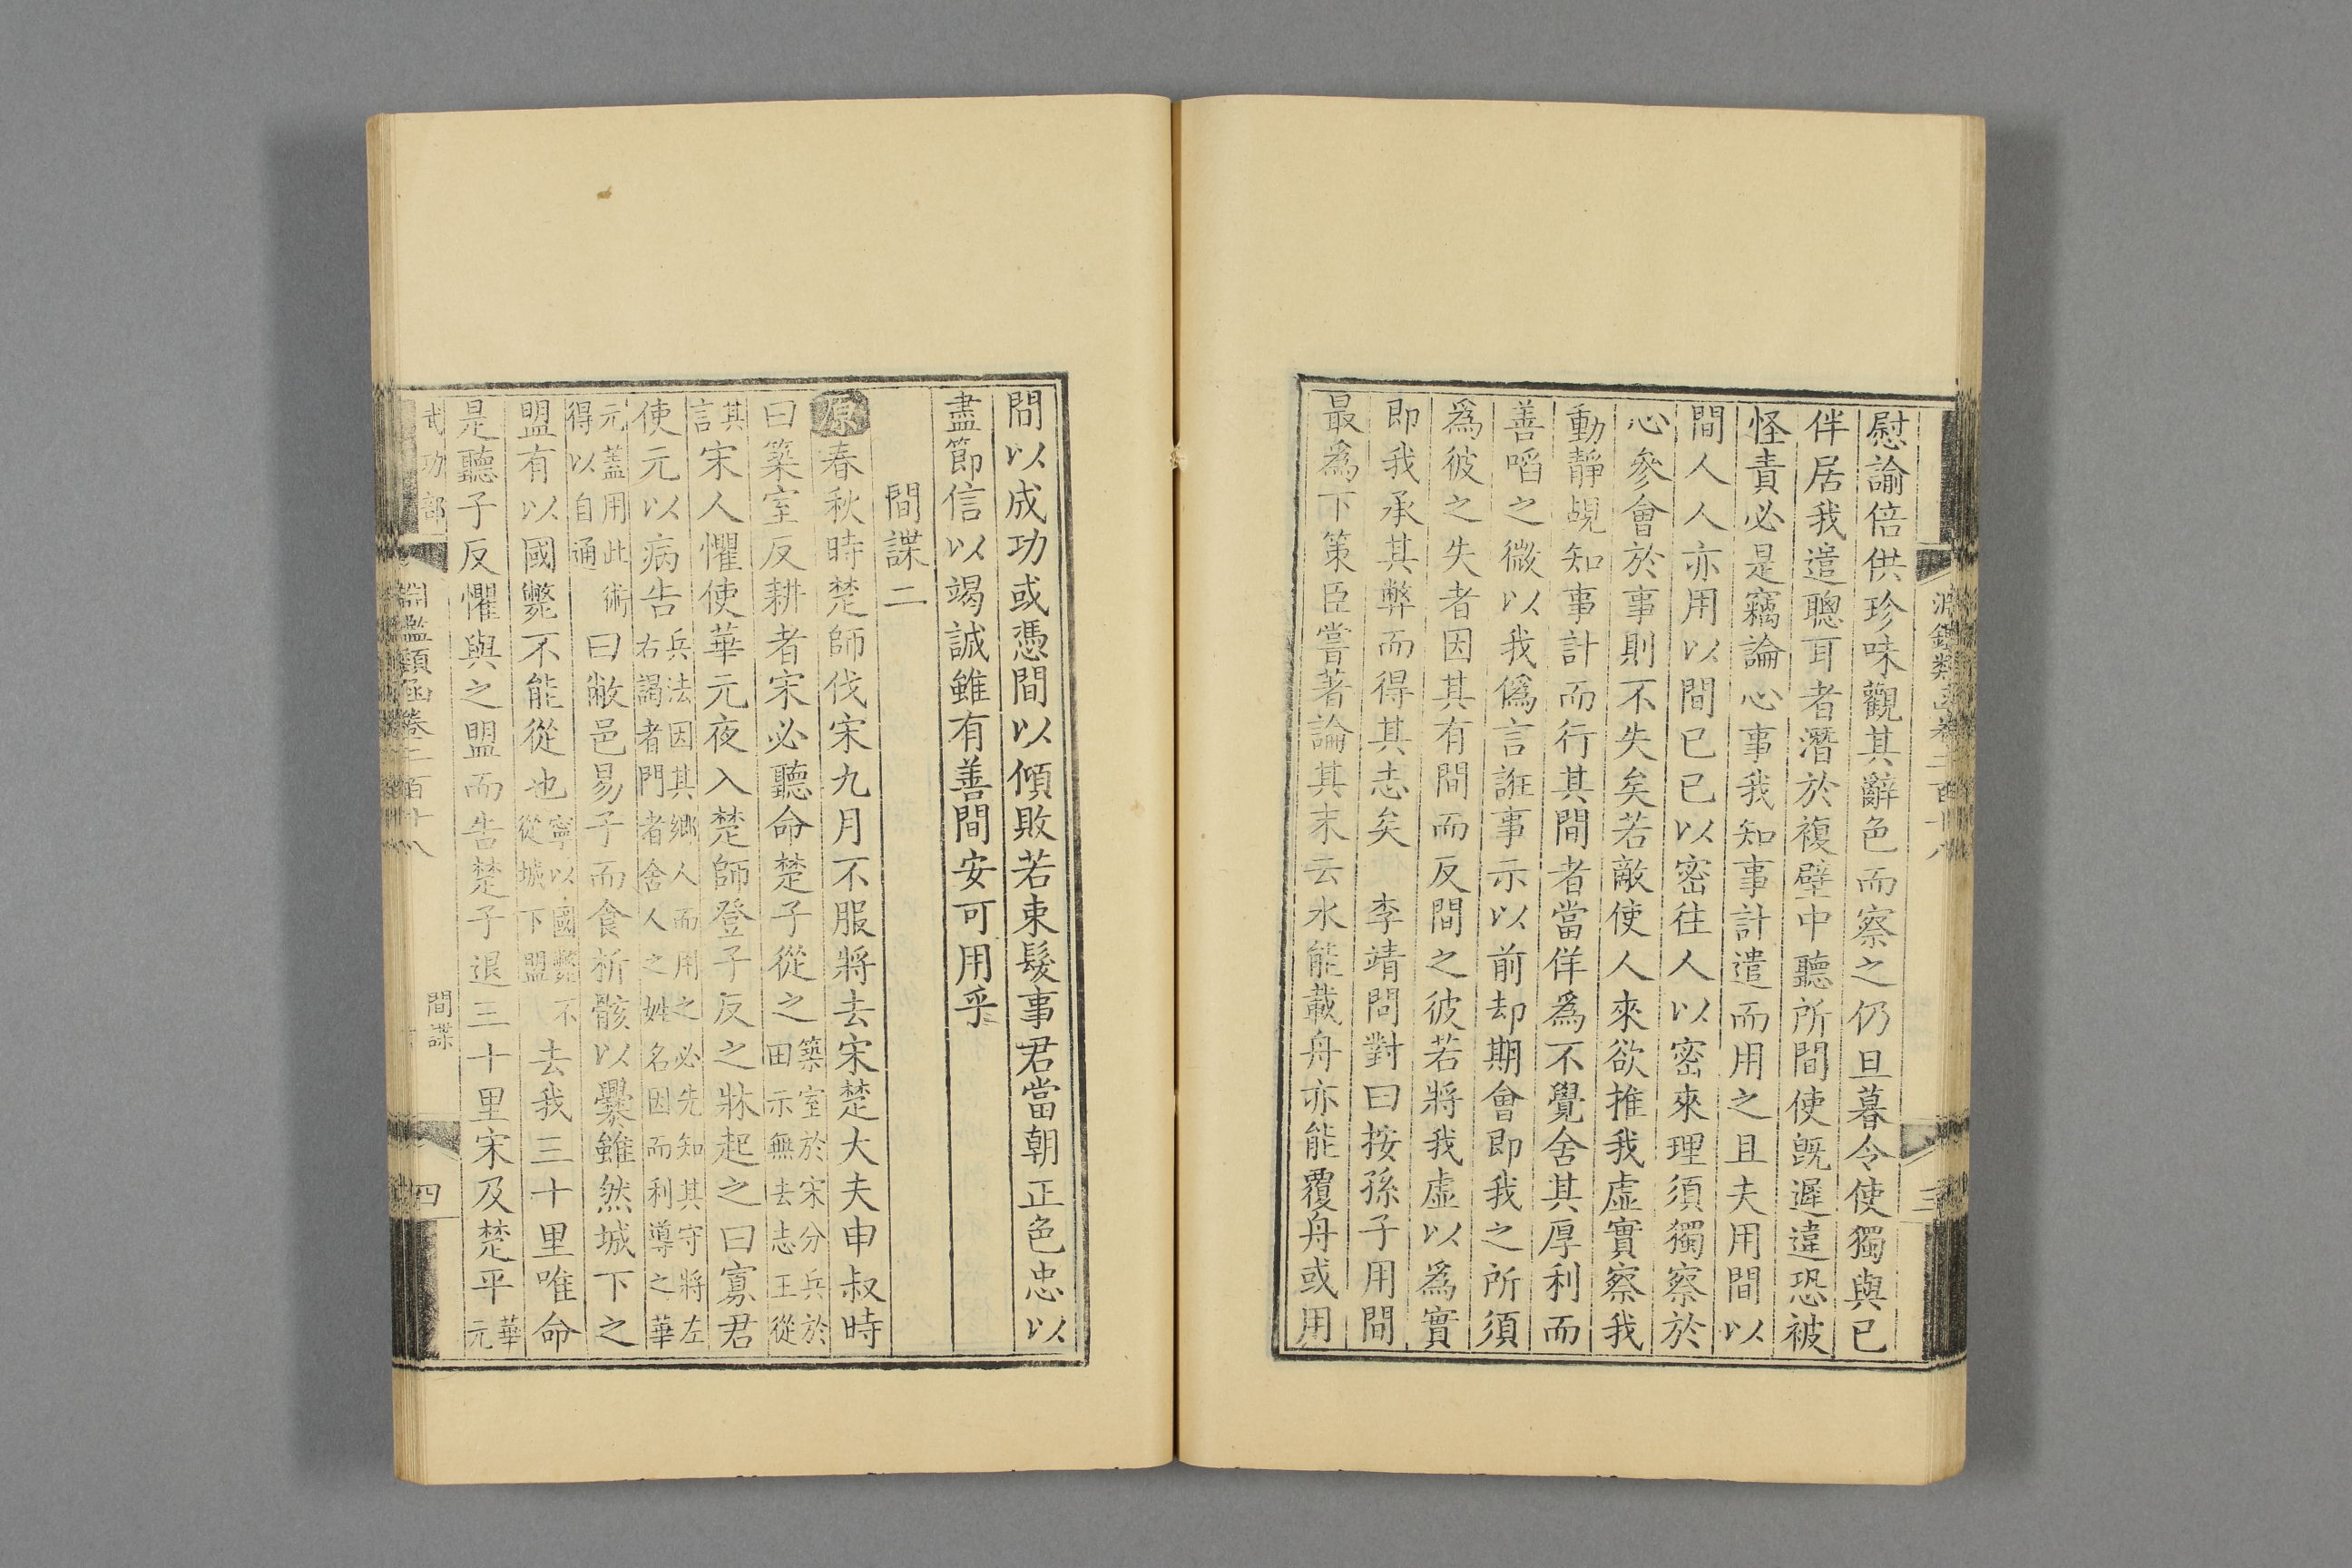 慰諭倍供珍味觀其辭色而察之仍旦暮令使獨與已
伴居我遣聰耳者潛於複壁中聽所間使旣遲違恐被
怪責必是竊論心事我知事計遣而用之且夫用間以
間人人亦用以間已已以密往人以密來理須獨察於
心參會於事則不失矣若敵使人來欲推我虛實察我
動靜覘知事計而行其間者當佯爲不覺舍其厚利而
善啗之微以我僞言誑事示以前却期會即我之所須
爲彼之失者因其有間而反間之彼若將我虛以爲實
即我承其弊而得其志矣　李靖問對曰按孫子用間
最爲下策臣嘗著論其末云水能載舟亦能覆舟或用
間以成功或憑間以傾敗若束髮事君當朝正色忠以
盡節信以竭誠雖有善間安可用乎
間諜二
原春秋時楚師伐宋九月不服將去宋楚大夫申叔時
曰築室反耕者宋必聽命楚子從之築室於宋分兵於田示無去志王從
其言宋人懼使華元夜入楚師登子反之牀起之曰寡君
使元以病告兵法因其鄉人而用之必先知其守將左右謁者門者舍人之姓名因而利導之華
元蓋用此術得以自通曰敝邑易子而食析骸以爨雖然城下之
盟有以國斃不能從也寧以國斃不從城下盟去我三十里唯命
是聽子反懼與之盟而告楚子退三十里宋及楚平華元
武功部
淵鑑類函卷二百十八
間諜
四